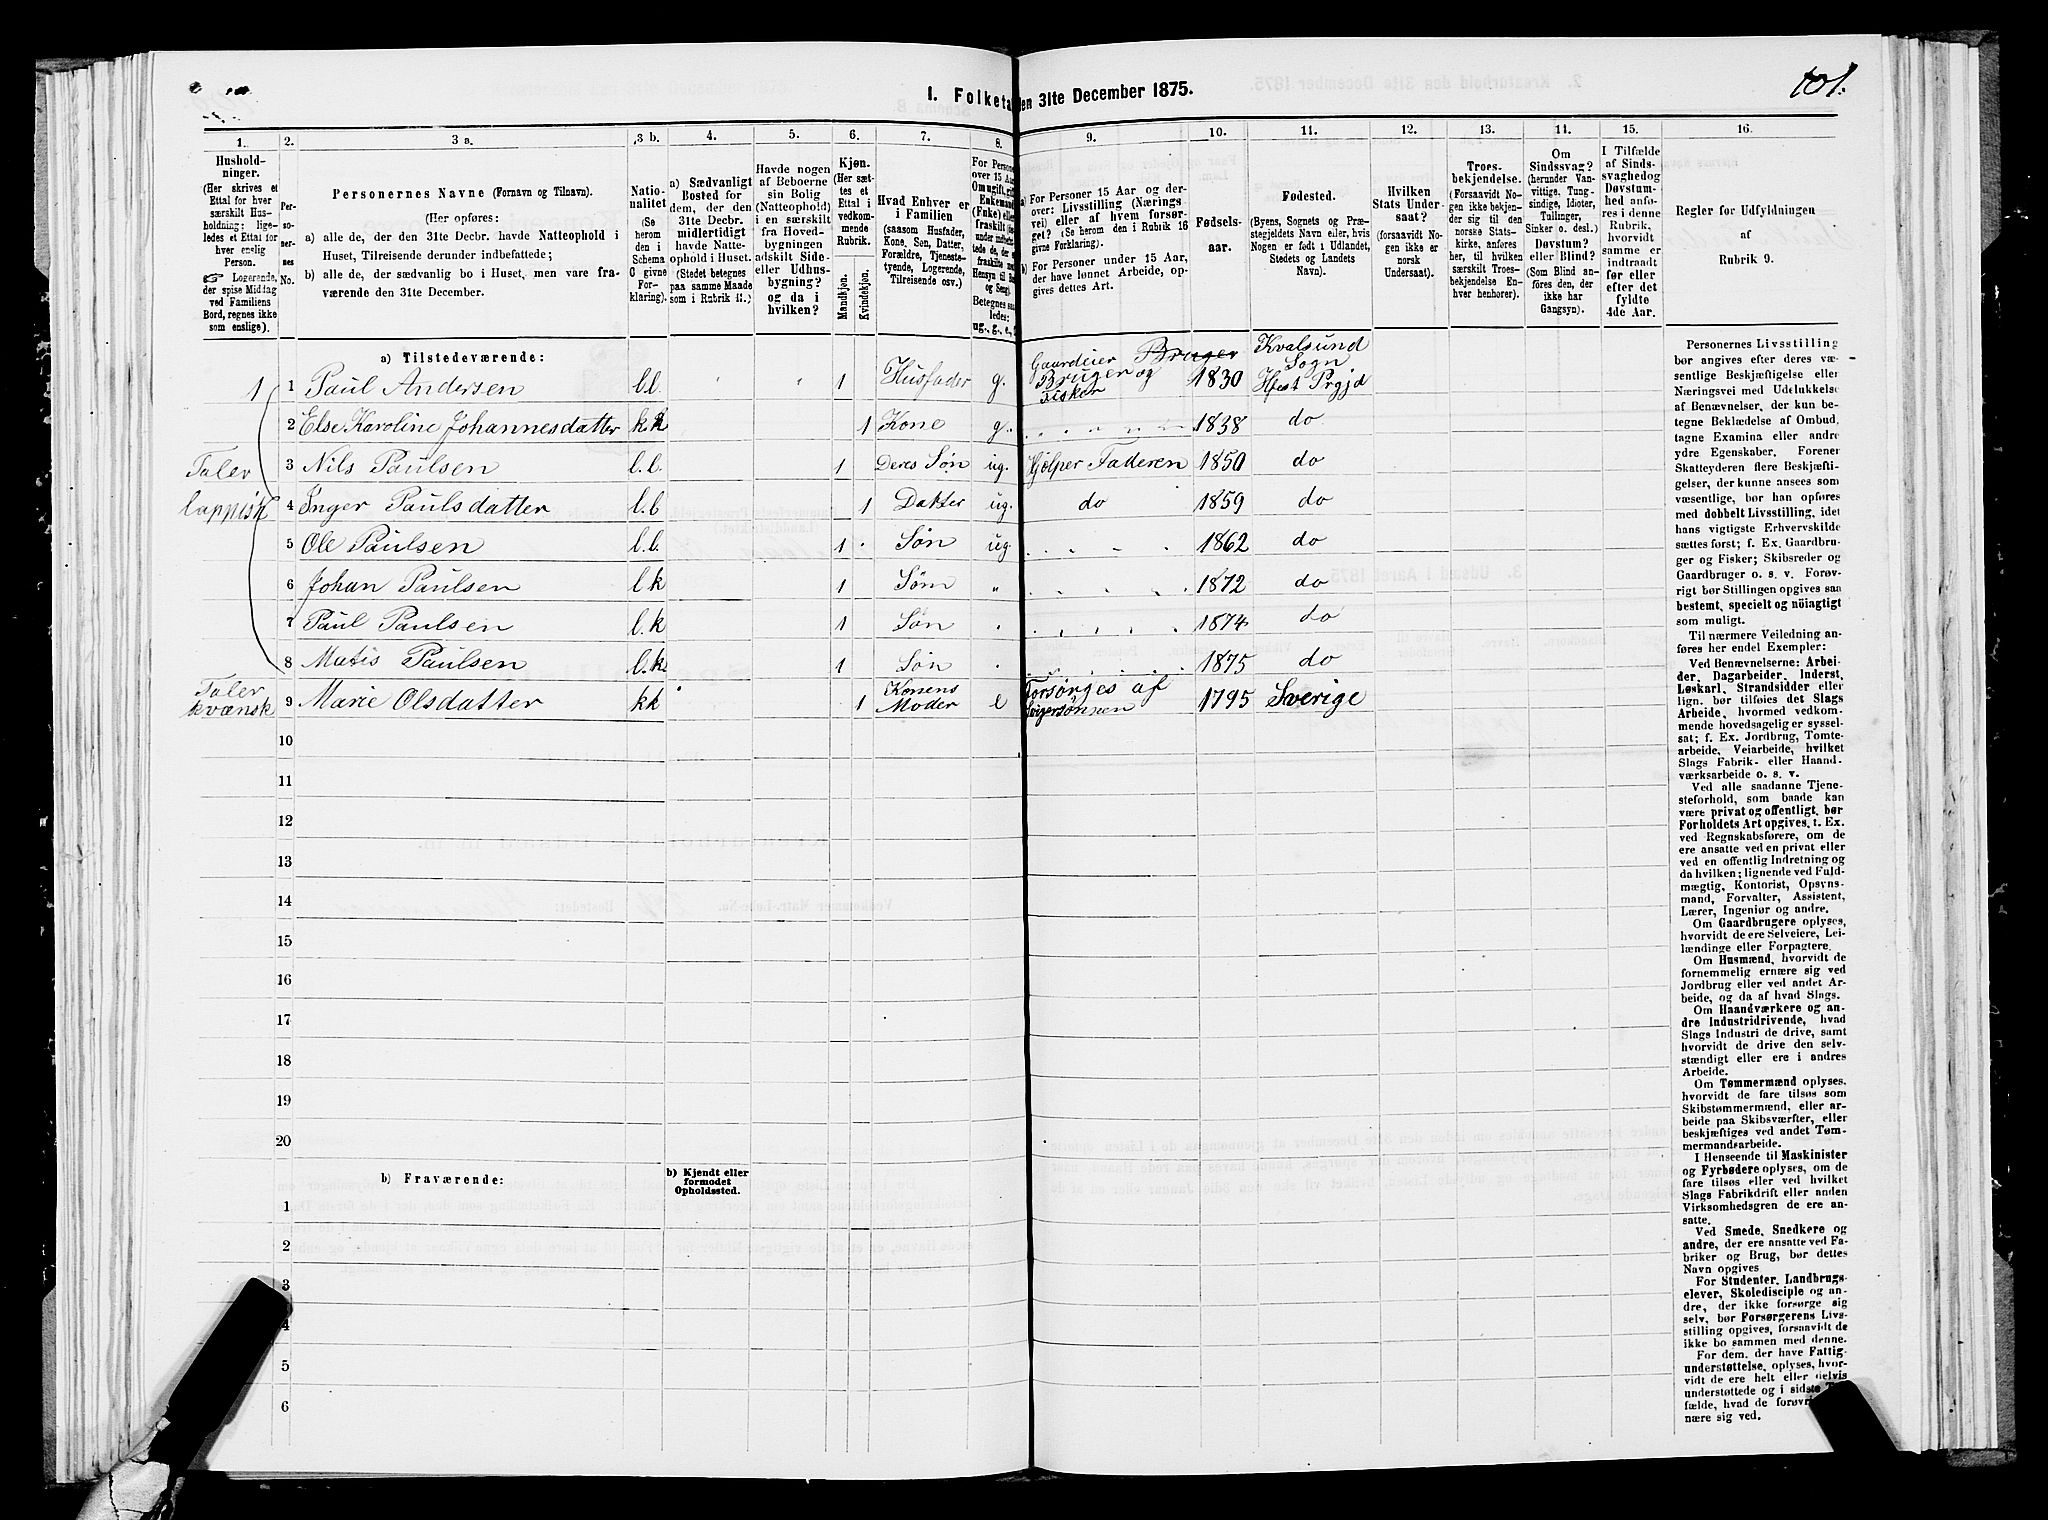 1. Folketa
en 31te December 1875.
101.
1.
Hushold-
ninger.
(Her skrives et
Ettal for hver
særskilt Hus-
holdning: lige-
ledes et Ettal for
hver enslig
Person.
Logerende,
der spise Middag
ved Familiens
Bord, regnes ikke
som enslige).
2.
Per-
so-
ner-
nes
No.
3 a.
Personernes Navne (Fornavn og Tilnavn).
(Her opføres:
a) alle de, der den 31te Decbr. havde Natteophold i
Huset, Tilreisende derunder indbefattede;
b) alle de, der sædvanlig bo i Huset, men vare fra-
værende den 31te December.)
3 b.
Natio-
nalitet
(Se
herom
den i
Schema
O givne
For-
klaring).
4.
a) Sædvanligt
Bosted for
dem, der den
31te Decbr.
midlertidigt
havde Natte-
ophold i Huset.
(Stedet betegnes
paa samme Maade
som i Rubrik 11.)
5.
Havde nogen
af Beboerne
sin Bolig
(Natteophold)
i en særskilt
fra Hoved-
bygningen
adskilt Side-
eller Udhus-
bygning?
og da i
hvilken?
6.
Kjøn.
(Her sæt-
tes et
Ettal i
vedkom-
mende
Rubrik.
Mandkjøn.
Kvindekjøn.
7.
Hvad Enhver er
i Familien
(saasom Husfader,
Kone, Søn, Datter,
Forældre, Tjeneste-
tyende, Logerende,
Tilreisende osv.)
8.
For Person
over 15 Aar
Om ugift, gift
Enkemand
(Enke) eller
fraskilt
Betegnes saa
ledes:
ug., g., e.,
9.
a) For Personer 15 Aar og der-
over: Livsstilling (Nærings
vei) eller af hvem forsør-
get? (Se herom den i Rubrik 16
givne Forklaring).
b) For Personer under 15 Aar,
der have lønnet Arbeide, op-
gives dettes Art.
10.
Fødsels-
aar.
11.
Fødested.
(Byens, Sognets og Præ-
stegjeldets Navn eller, hvis
Nogen er født i Udlandet,
Stedets og Landets
Navn).
12.
Hvilken
Stats Under-
saat?
(forsaavidt No-
gen ikke er
norsk
Undersaat).
13.
Troes-
bekjendelse.
(Forsaavidt No-
gen ikke bekjen-
der sig til den
norske Stats-
kirke, anføres
her, til hvilken
særskilt Troes-
bekjendelse En-
hver henhører).
14.
Om
Sindssvag?
(herunder Van-
vittige, Tung-
sindige, Idioter,
Tullinger,
Sinker o. desl.)
Døvstum?
eller Blind?
(Som Blind an-
føres den, der
ikke har
Gangsyn).
15.
I Tilfælde
af Sinds-
svaghed og
Døvstum-
hed anfø-
res i denne
Rubrik,
hvorvidt
samme er
indtraadt
før eller
efter det
fyldte
4de Aar.
16.
Regler for Udfyldningen
af
Rubrik 9.
a) Tilstedeværende:
1 1 Paul Andersen l.l. 1 Husfader g. Gaardeier Bruger og Fisker 1830 Kvalsund Sogn
2 Else Karoline Johannesdatter k.k 1 Kone g. 1838 do
Taler 3 Nils Paulsen l.l. 1 Deres Søn ug. Hjelper Faderen 1850 do
lappisk 4 Inger Paulsdatter l.l 1 Datter ug. do 1859 do
5 Ole Paulsen l.l. 1 Søn ug 1862 do
6 Johan Paulsen l.k 1 Søn " 1872 do
7 Paul Paulsen l.k 1 Søn 1874 do
8 Matis Paulsen l.k. 1 Søn 1875 do
Taler kvænsk 9 Marie Olsdatter kk 1 Konens Moder e Forsørges af 1795 Sverige
10
11
12
13
14
15
16
17
18
19
20
b) Fraværende:
b) Kjendt eller
formodet
Opholdssted.
1
2
3
4
5
6
Personernes Livsstilling
bør angives efter deres væ-
sentlige Beskjæftigelse eller
Næringsvei med Udelukkelse
af Benævnelser, der kun be-
tegne Beklædelse af Ombud,
tagne Examina eller andre
ydre Egenskaber. Forener
Skatteyderen flere Beskjæfti-
gelser, der kunne ansees som
væsentlige, bør han opføres
med dobbelt Livsstilling, idet
hans vigtigste Erhvervskilde
sættes først; f. Ex. Gaardbru-
ger og Fisker; Skibsreder og
Gaardbruger o. s. v. Forøv-
rigt bør Stillingen opgives saa
bestemt, specielt og nöiagtigt
som muligt.
Til nærmere Veiledning an-
føres her endel Exempler:
Ved Benævnelserne: Arbei-
der, Dagarbeider, Inderst,
Løskarl, Strandsidder eller
lign. bør tilføies det Slags
Arbeide, hvormed vedkom-
mende hovedsagelig er syssel-
sat; f. Ex. Jordbrug, Tomte-
arbeide, Veiarbeide, hvilket
Slags Fabrik- eller Haand-
værksarbeide o. s. v.
Ved alle saadanne Tjene-
steforhold, som baade kan
være privat og offentligt, bør
Forholdets Art opgives, t. Ex.
ved Regnskabsførere, om de
ere ansatte ved en privat eller
ved en offentlig Indretning og
da hvilken; lignende ved Fuld-
mægtig, Kontorist, Opsyns-
mand, Forvalter, Assistent,
Lærer, Ingeniør og andre.
Om Gaardbrugere oplyses,
hvorvidt de ere Selveiere, Lei-
lændinge eller Forpagtere.
Om Husmænd, hvorvidt de
fornemmelig ernære sig ved
Jordbrug eller ved andet Ar-
beide, og da af hvad Slags.
Om Haandværkere og an-
dre Industridrivende, hvad
Slags Industri de drive, samt
hvorvidt de drive den selv-
stændigt eller ere i andres
Arbeide.
Om Tømmermænd oplyses,
hvorvidt de fare tilsøs som
Skibstømmermænd, eller ar-
beide paa Skibsværfter, eller
beskjæftiges ved andet Tøm-
mermandsarbeide.
I Henseende til Maskinister
og Fyrbødere oplyses, om de
fare tilsøs eller ved hvilket
Slags Fabrikdrift eller anden
Virksomhedsgren de ere an-
satte.
Ved Smede, Snedkere og
andre, der ere ansatte ved Fa-
briker og Brug, bør dettes
Navn opgives
For Studenter, Landbrugs-
elever, Skoledisciple og an-
dre, der ikke forsørge sig
selv, bør Forsørgerens Livs-
stilling opgives, forsaavidt de
ikke bo sammen med denne.
For dem, der have Fattig-
understøttelse, oplyses, hvor-
vidt de ere helt eller delvis
understøttede og i sidste
fælde, hvad de forøv
nære sig ved.